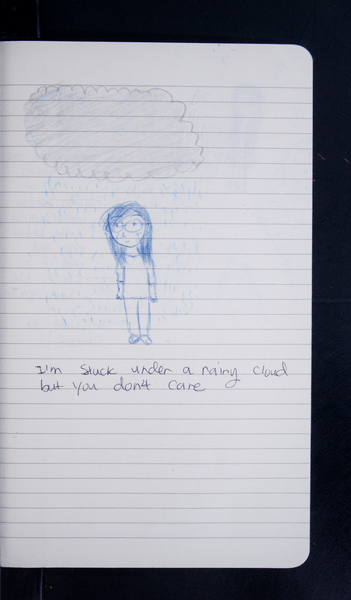 I'm stuck under a rainy cloud
but you don't care